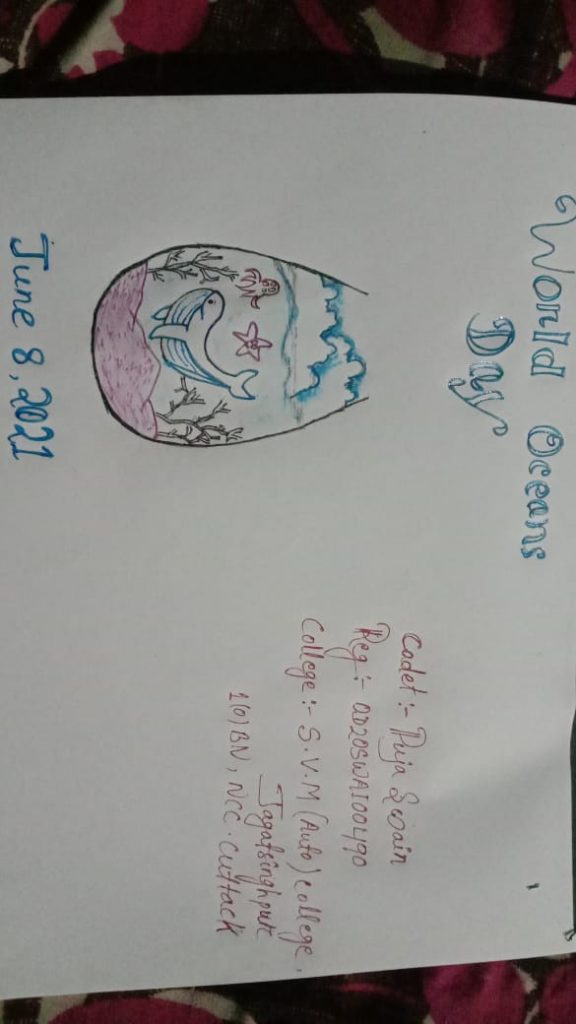 World Oceans
Day
June 8, 2021
Cadet :- Puja Swain
Reg :- OD20SWAI00490
College :- S.V.M (Auto) college,
Jagatsinghpur
1(O) BN, NCC. Cuttack